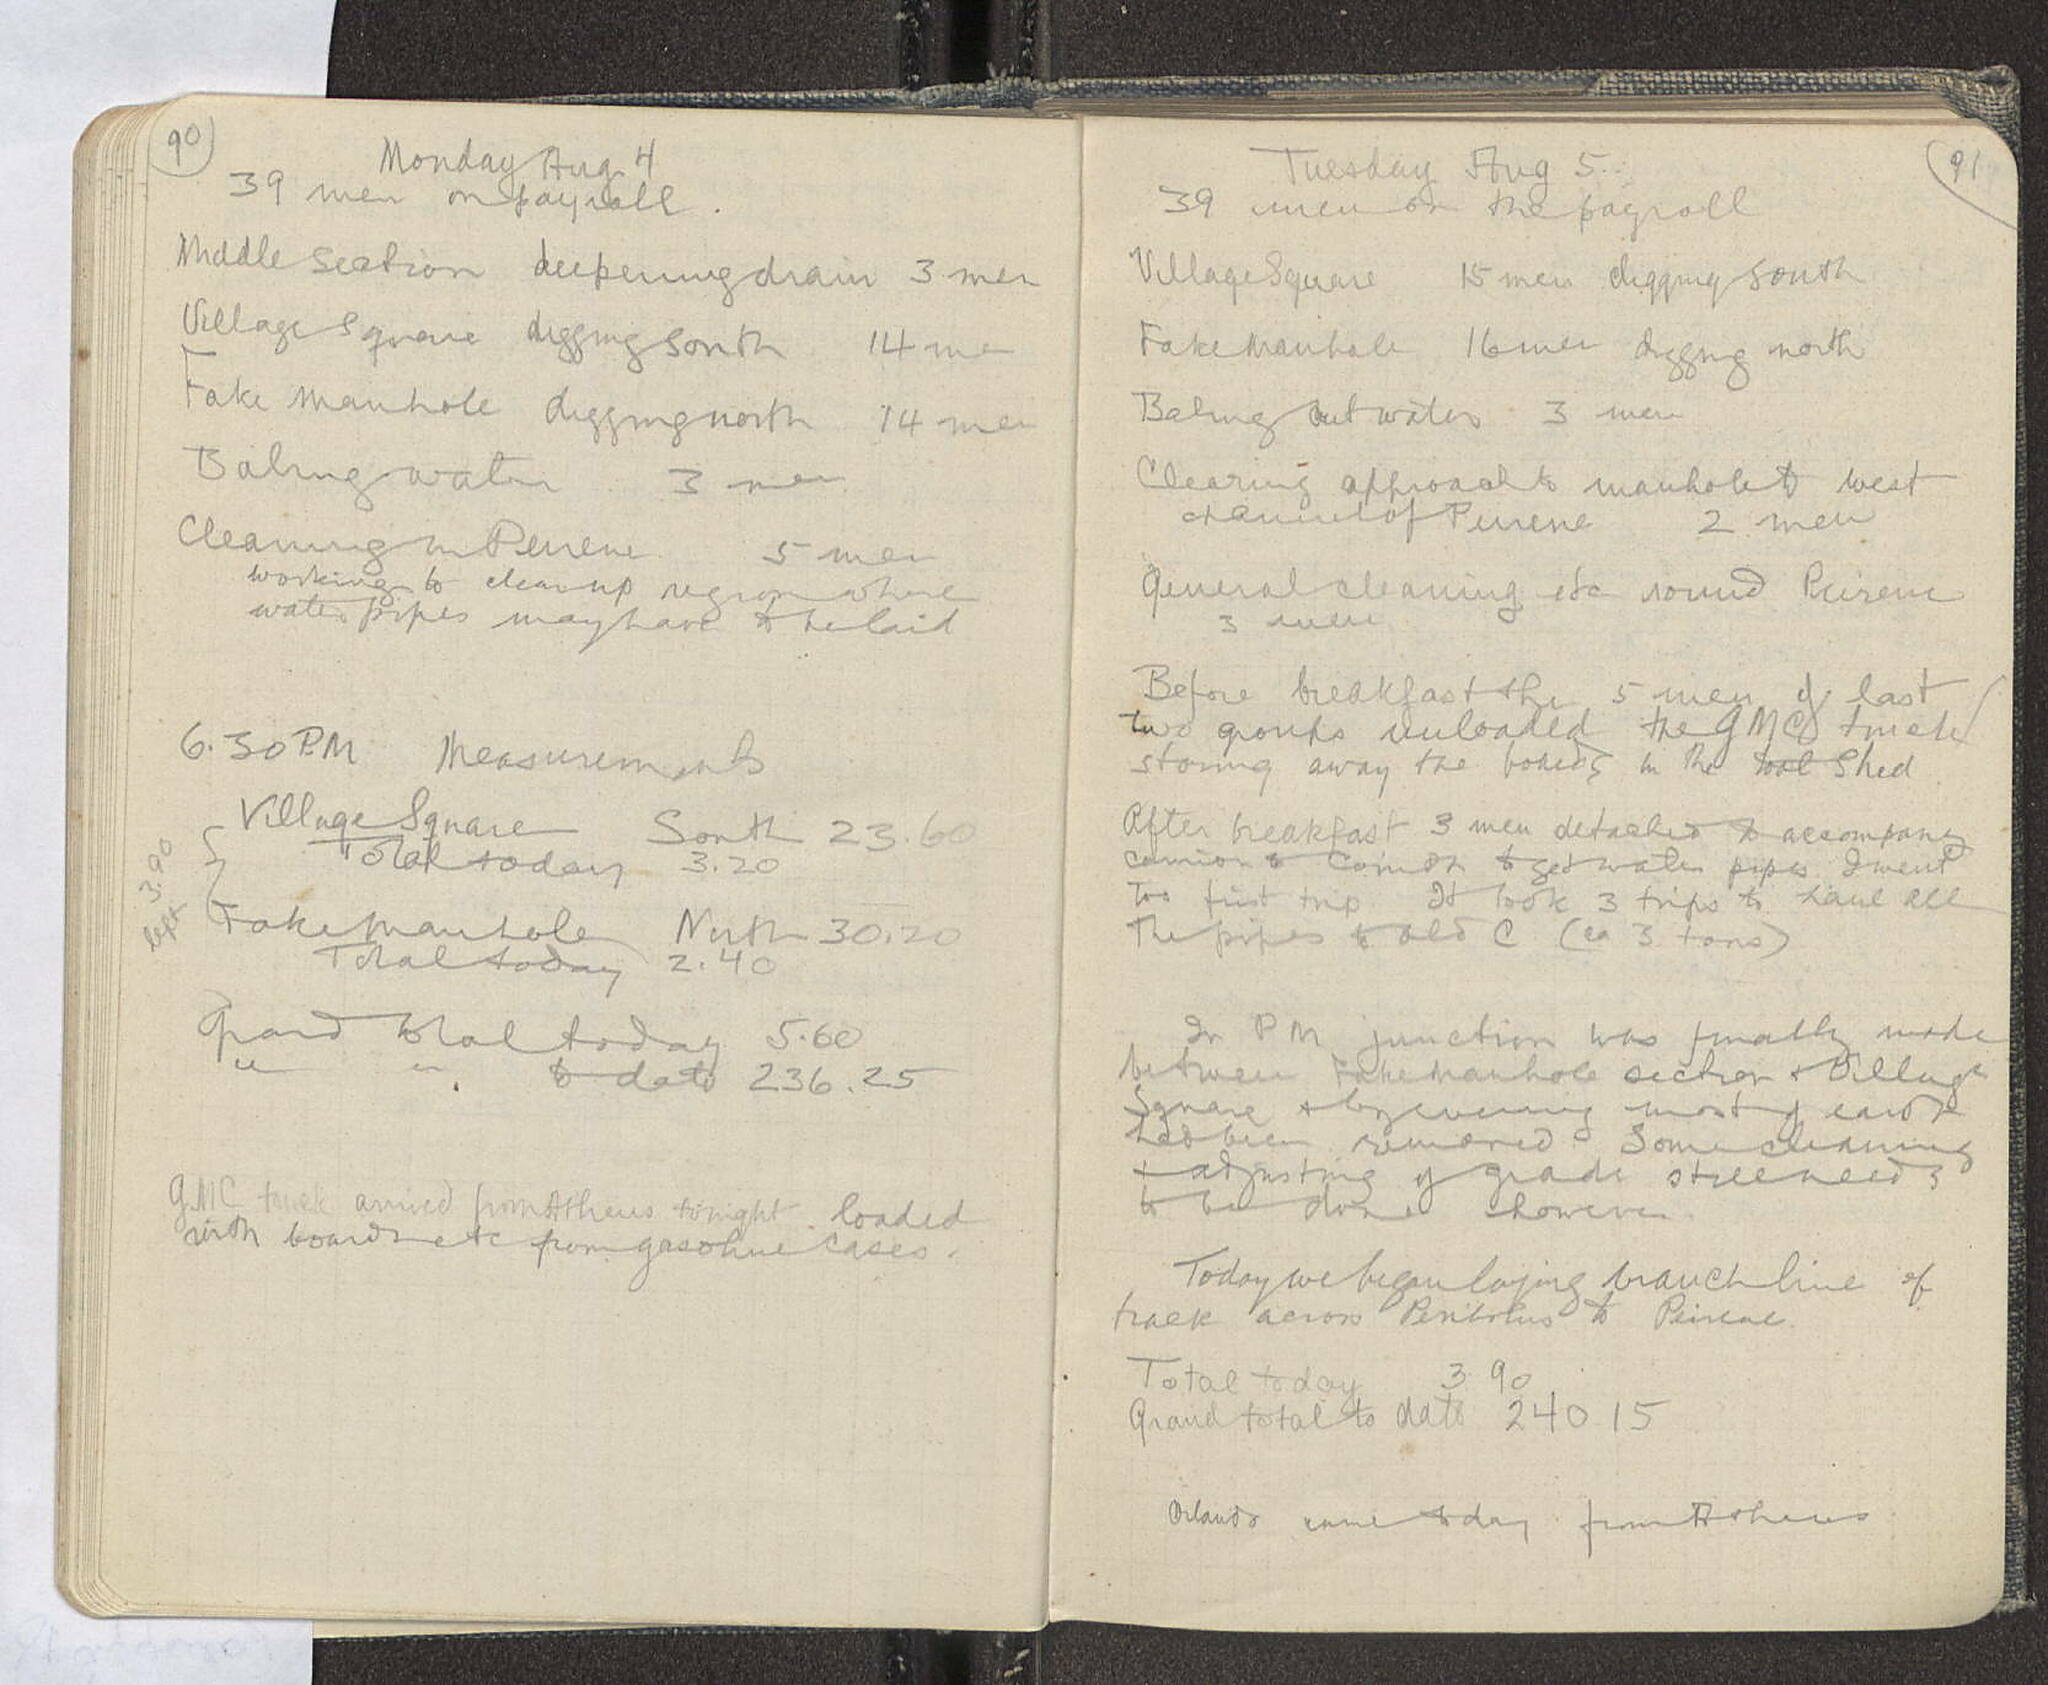 90
Monday Aug 4
39 men on payroll.
Middle Section deepening drain 3 men
Village Square digging South 14 men
Fake Manhole digging north 14 men
Baling water 3 men
Cleaning in Peirene 5 men
working to clean up region where
water pipes may have to be laid
6.30 P.M Measurements
Village Square South 23.60
Total today 3.20
3.90
left
Fake Manhole North 30.20
Total today 2.40
Grand total today 5.60
" " to date 236.25
GMC truck arrived from Athens tonight loaded
with boards etc from gasoline cases.
91
Tuesday Aug 5.
39 men on the payroll
Village Square 15 men digging South
Fake Manhole 16 men digging north
Baling out water 3 men
Clearing approach to manhole to west
channel of Peirene 2 men
General cleaning etc round Peirene
3 men
Before breakfast the 5 men of last
two groups unloaded the GMC truck
storing away the boards in the tool shed
After breakfast 3 men detached to accompany
camion to Corinth to get water pipes I went
too first trip It took 3 trips to haul all
the pipes to Old C (ca 3 tons)
In PM junction was finally made
between Fake Manhole section + Village
Square + by evening most of earth
had been removed Some cleaning
+ adjusting of grade still needs
to be done however.
Today we began laying branch line of
track across Peribolus to Peirene.
Total today 3 90
Grand total to date 240 15
Orlando came today from Athens